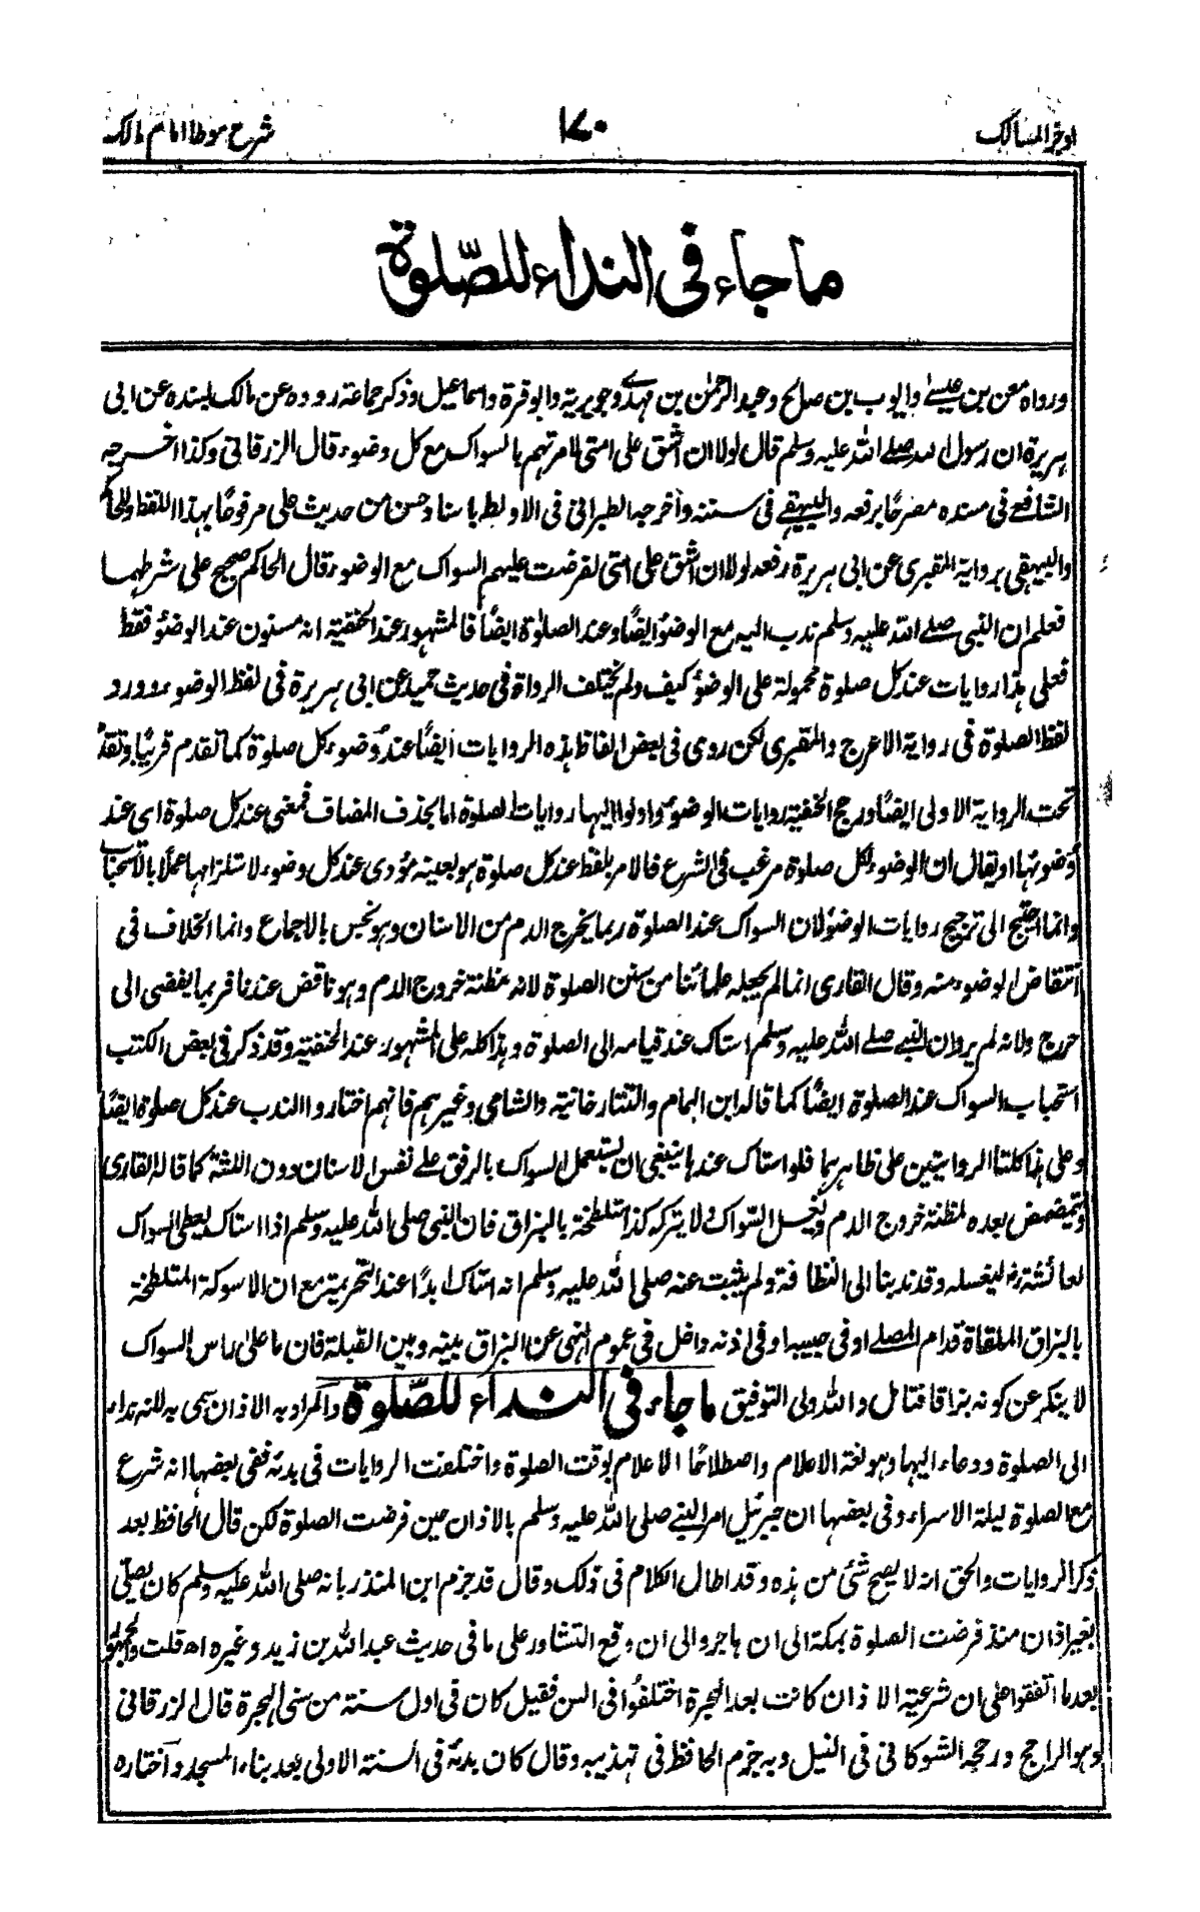 اوجز المسالك
١٧٠
شرح موطا امام مالك
ما جاء فى النداء للصّلوة
ورواه معن بن عيسىٰ وايوب بن صالح وعبد الرحمٰن بن مهدى وجويرية وابو قرة واسماعيل وذكر جماعة رووه عن مالك بسنده عن ابى
هريرة ان رسول الله صلے اللّٰه عليه وسلم قال لولا ان اشق على امتى لامرتهم بالسواك مع كل وضوء قال الزرقانى وكذا اخرجه
الشافعے فى مسنده مصرحًا برفعه والبيهقے فى سننه واخرجه الطبرانى فى الاوسط باسناد حسن من حديث على مرفوعًا بهذا اللفظ وللحاكم
والبيهقى برواية المقبرى عن ابى هريرة رفعه لولا ان اشق على امتى لفرضت عليهم السواك مع الوضوء قال الحاكم صحيح على شرطهما
فعلم ان النبى صلے اللّٰه عليه وسلم ندب اليه مع الوضوء ايضًا وعند الصلوٰة ايضًا فالمشهور عند الحنفية انه مسنون عند الوضوء فقط
فعلى هذا روايات عند كل صلوة محمولة على الوضوء كيف ولم يختلف الرواة فى حديث حميد عن ابى هريرة فى لفظ الوضوء وورود
لفظ الصلوة فى رواية الاعرج والمقبرى لكن روى فى بعض الفاظ هذه الروايات ايضًا عند وضوء كل صلوة كما تقدم قريبًا وتقدم
تحت الرواية الاولى ايضًا ورجح الحنفية روايات الوضوء واولوا اليها روايات الصلوة اما بحذف المضاف فمعنى عند كل صلوة اى عند
وضوئها او يقال ان الوضوء لكل صلوة مرغب فى الشرع فالامر بلفظ عند كل صلوة هو بعينه مؤدى عند كل وضوء لاستلزامها عملا بالاستحباب
وانما احتيج الى ترجيح روايات الوضوء لان السواك عند الصلوة ربما يخرج الدم من الاسنان وهو نجس بالاجماع وانما الخلاف فى
انتقاض الوضوء منه وقال القارى انما لم يجعله علمائنا من سنن الصلوة لانه مظنة خروج الدم وهو ناقض عندنا فربما يفضى الى
حرج ولانه لم يرو ان النبے صلے اللّٰه عليه وسلم استاك عند قيامه الى الصلوة وهذا كله على المشهور عند الحنفية وقد ذكر فى بعض الكتب
استحباب السواك عند الصلوة ايضًا كما قاله ابن الهمام والتتارخانية والشامى وغيرهم فانهم اختاروا الندب عند كل صلوة ايضًا
وعلى هذا كلتا الروايتين على ظاهرهما فلو استاك عندها ينبغى ان يستعمل السواك بالرفق علے نفس الاسنان دون اللثة كما قاله القارى
ويتمضمض بعده لمظنة خروج الدم ويغسل السّواك ولا يتركه كذا متلطخة بالبزاق فان النبى صلى اللّٰه عليه وسلم اذا استاك يعطى السواك
لعائشة رض ليغسله وقد ندبنا الى النظافة ولم يثبت عنه صلى اللّٰه عليه وسلم انه استاك ابدًا عند التحريمة مع ان الاسوكة المتلطخة
بالبزاق الملقاة قدام المصلے او فى جيبه او فى اذنه داخل فى عموم النهى عن البزاق بينه وبين القبلة فان ما على راس السواك
لا ينكر عن كونه بزاقا فتامل واللّٰه ولى التوفيق ما جاء فى النداء للصّلوة والمراد به الاذان سمى به لانه نداء
الى الصلوة ودعاء اليها وهو لغة الاعلام واصطلاحًا الاعلام بوقت الصلوة واختلفت الروايات فى بدئه ففى بعضها انه شرع
مع الصلوة ليلة الاسراء وفى بعضها ان جبرئيل امر النبے صلى اللّٰه عليه وسلم بالاذان حين فرضت الصلوة لكن قال الحافظ بعد
ذكر الروايات والحق انه لا يصح شئ من هذه وقد اطال الكلام فى ذلك وقال قد جزم ابن المنذر بانه صلى اللّٰه عليه وسلم كان يصلى
بغير اذان منذ فرضت الصلوة بمكة الى ان هاجر والى ان وقع التشاور على ما فى حديث عبد اللّٰه بن زيد وغيره اه قلت والجمهور
بعد ما اتفقوا على ان شرعية الاذان كانت بعد الهجرة اختلفوا فى السن فقيل كان فى اول سنة من سنى الهجرة قال الزرقانى
وهو الراجح ورجحه الشوكانى فى النيل وبه جزم الحافظ فى تهذيبه وقال كان بدئه فى السنة الاولى بعد بناء المسجد واختاره